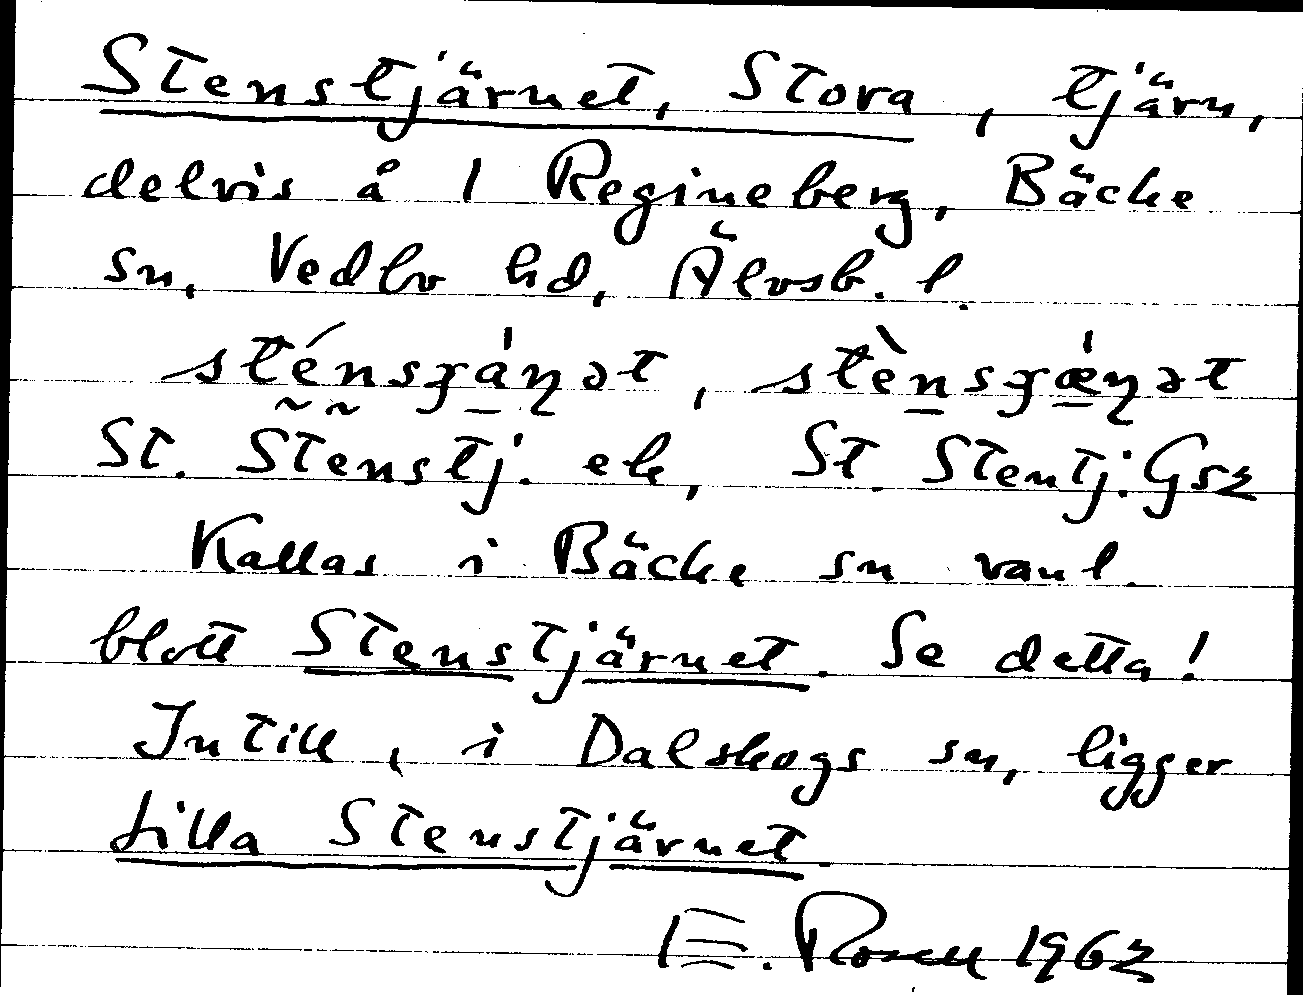 Stenstjärnet, Stora, tjärn,
delvis å 1 Regineberg, Bäcke
sn, Vedbo hd, Älvsb. l.
sténsɟáɳət, stènsɟǽɳət
St. Stenstj. ek, St. Stentj. Gsz
Kallas i Bäcke sn vanl.
blott Stenstjärnet. Se detta!
Intill, i Dalskogs sn, ligger
Lilla Stenstjärnet.
E. Rosell 1962